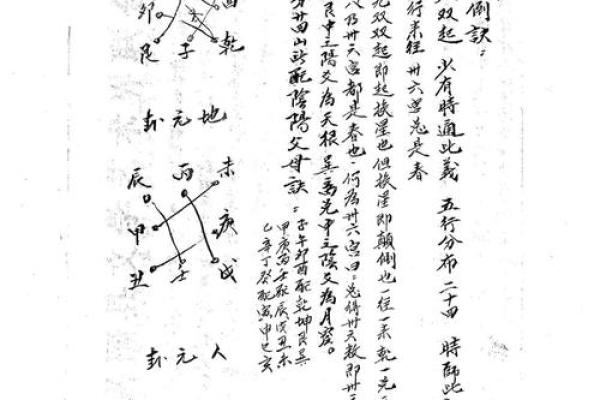 倒訣：
双起 少有時通此義 五行分布二十四 時師此
行来往 卅六宮总是春
元双双起即起挨星也但挨星即顛倒也一往一来乾一兌
八乃卅六宮都是春也何為卅六宮曰：总得卅六数即卅
艮中三陽爻為天根巽离兌中三陰爻為月窟。
分廿四山所配陰陽父母訣：
子午卯酉配乾坤艮巽
甲庚丙壬配辰戌丑未
乙辛丁癸配寅申巳亥
酉
卯
乾
子
艮
地元卦
未
丙
辰
庚
甲
戌
壬
丑
人元卦